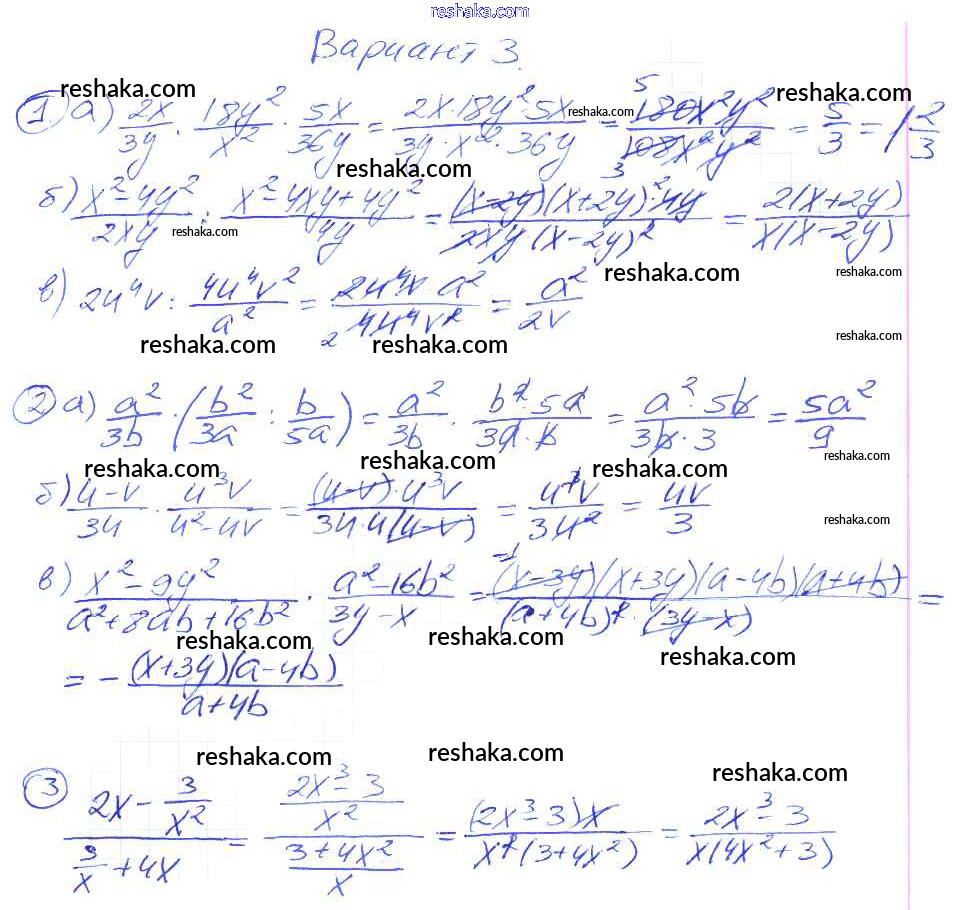 reshaka.com
Вариант 3.
reshaka.com reshaka.com
① а) 2x/3y · 18y²/x² · 5x/36y = 2x·18y²·5x/3y·x²·36y = 180x²y²/108x²y² = 5/3 = 1 2/3
reshaka.com
5
3
reshaka.com
б) x²-4y²/2xy : x²-4xy+4y²/4y = (x-2y)(x+2y)·4y/2xy(x-2y)² = 2(x+2y)/x(x-2y)
2
reshaka.com
reshaka.com reshaka.com
в) 2u⁴v : 4u⁴v²/a² = 2u⁴v a²/4u⁴v² = a²/2v
2
reshaka.com reshaka.com reshaka.com
② а) a²/3b · (b²/3a : b/5a) = a²/3b · b²·5a/3a·b = a²·5b/3b·3 = 5a²/9
reshaka.com reshaka.com reshaka.com reshaka.com
б) u-v/3u · u³v/u²-uv = (u-v)·u³v/3u·u(u-v) = u³v/3u² = uv/3
reshaka.com
в) x²-9y²/a²+8ab+16b² · a²-16b²/3y-x = (x-3y)(x+3y)(a-4b)(a+4b)/(a+4b)²·(3y-x) =
-1
reshaka.com reshaka.com reshaka.com
= - (x+3y)(a-4b)/a+4b
reshaka.com reshaka.com reshaka.com
③ 2x - 3/x² / 3/x + 4x = 2x³-3/x² / 3+4x²/x = (2x³-3)x/x²(3+4x²) = 2x³-3/x(4x²+3)